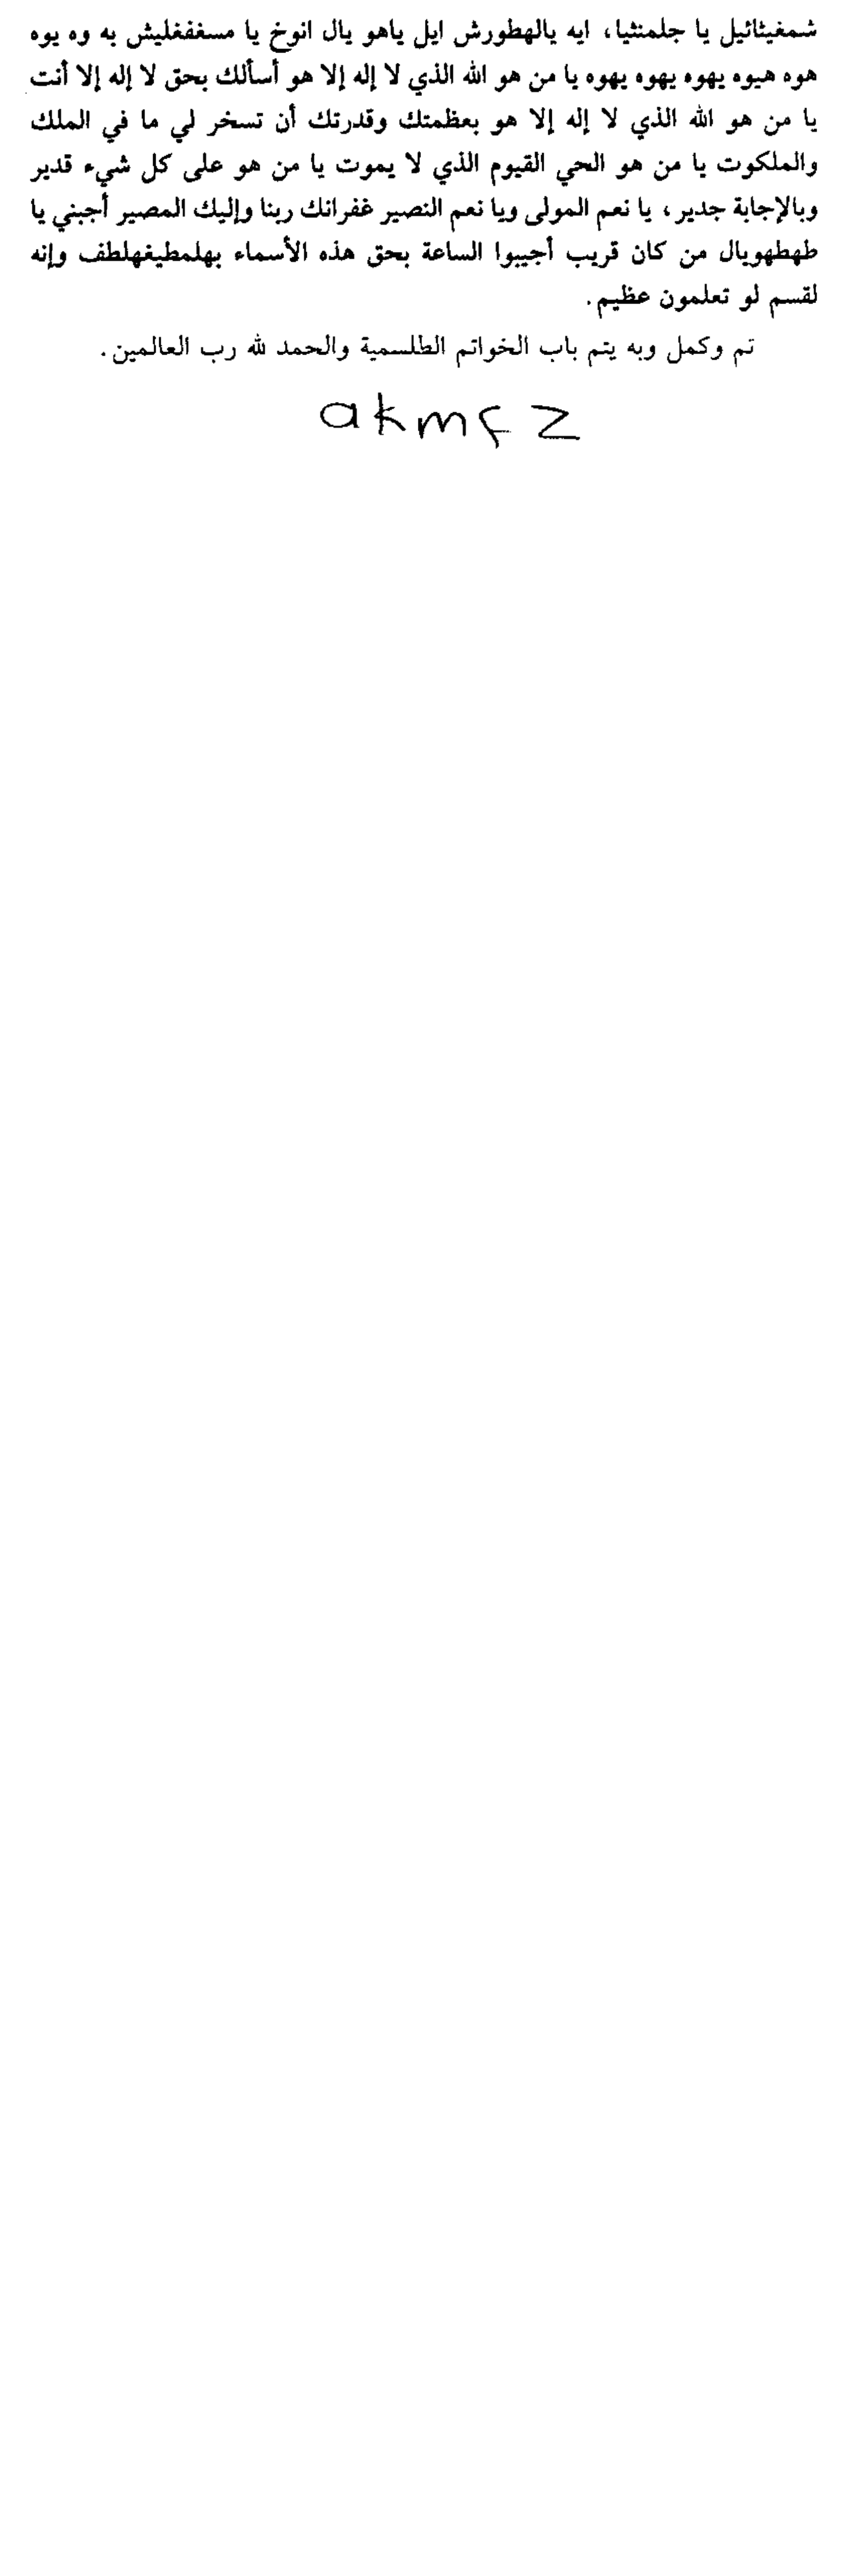 شمغيثائيل يا جلمنثيا، ايه يالهطورش ايل ياهو يال انوخ يا مسغفغليش به وه يوه
هوه هيوه يهوه يهوه يهوه يا من هو الله الذي لا إله إلا هو أسألك بحق لا إله إلا أنت
يا من هو الله الذي لا إله إلا هو بعظمتك وقدرتك أن تسخر لي ما في الملك
والملكوت يا من هو الحي القيوم الذي لا يموت يا من هو على كل شيء قدير
وبالإجابة جدير، يا نعم المولى ويا نعم النصير غفرانك ربنا وإليك المصير أجبني يا
طهطهويال من كان قريب أجيبوا الساعة بحق هذه الأسماء بهلمطيغهلطف وإنه
لقسم لو تعلمون عظيم.
تم وكمل وبه يتم باب الخواتم الطلسمية والحمد لله رب العالمين.
akmçz